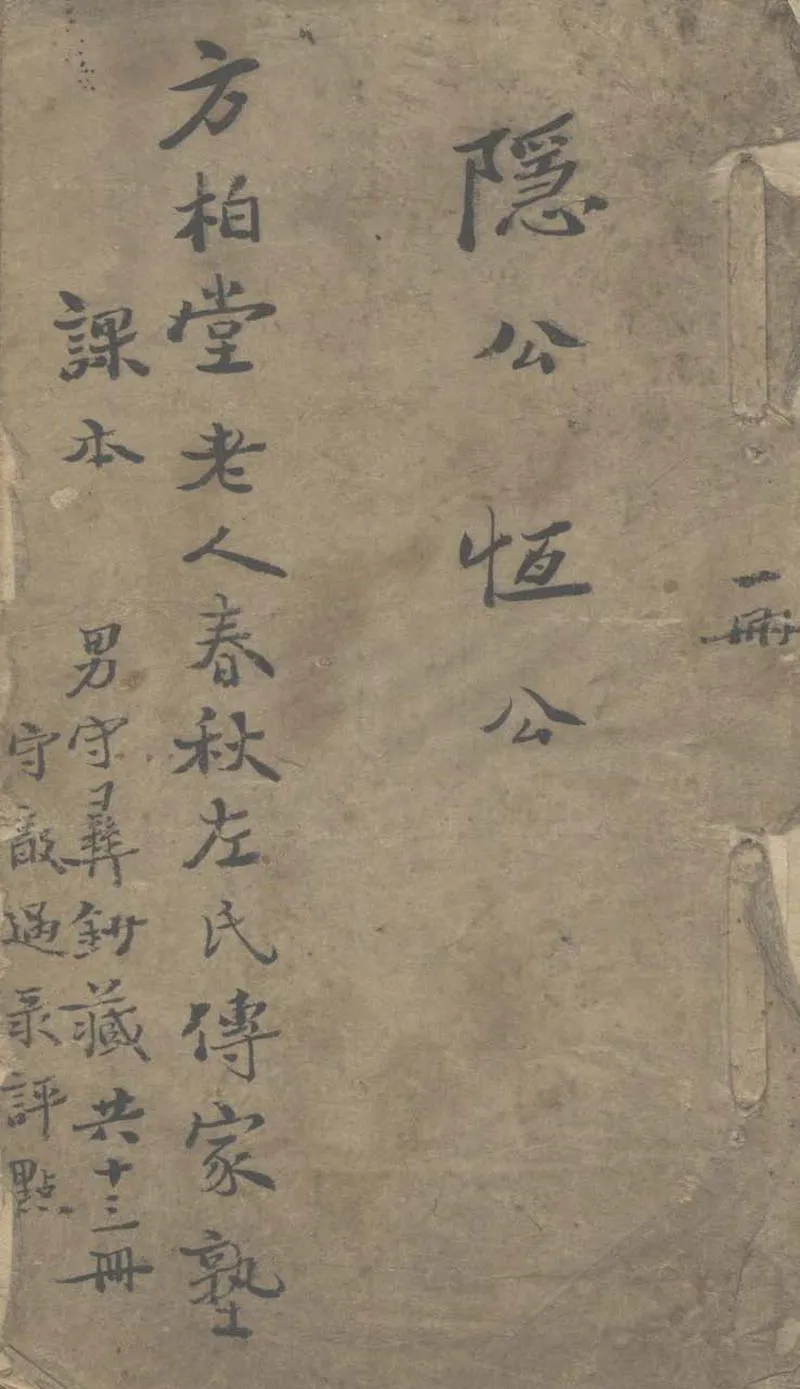 一冊
隱公 恆公
方柏堂老人春秋左氏傳家塾
課本 男守彝鈔藏共十三冊
守敦過录評點